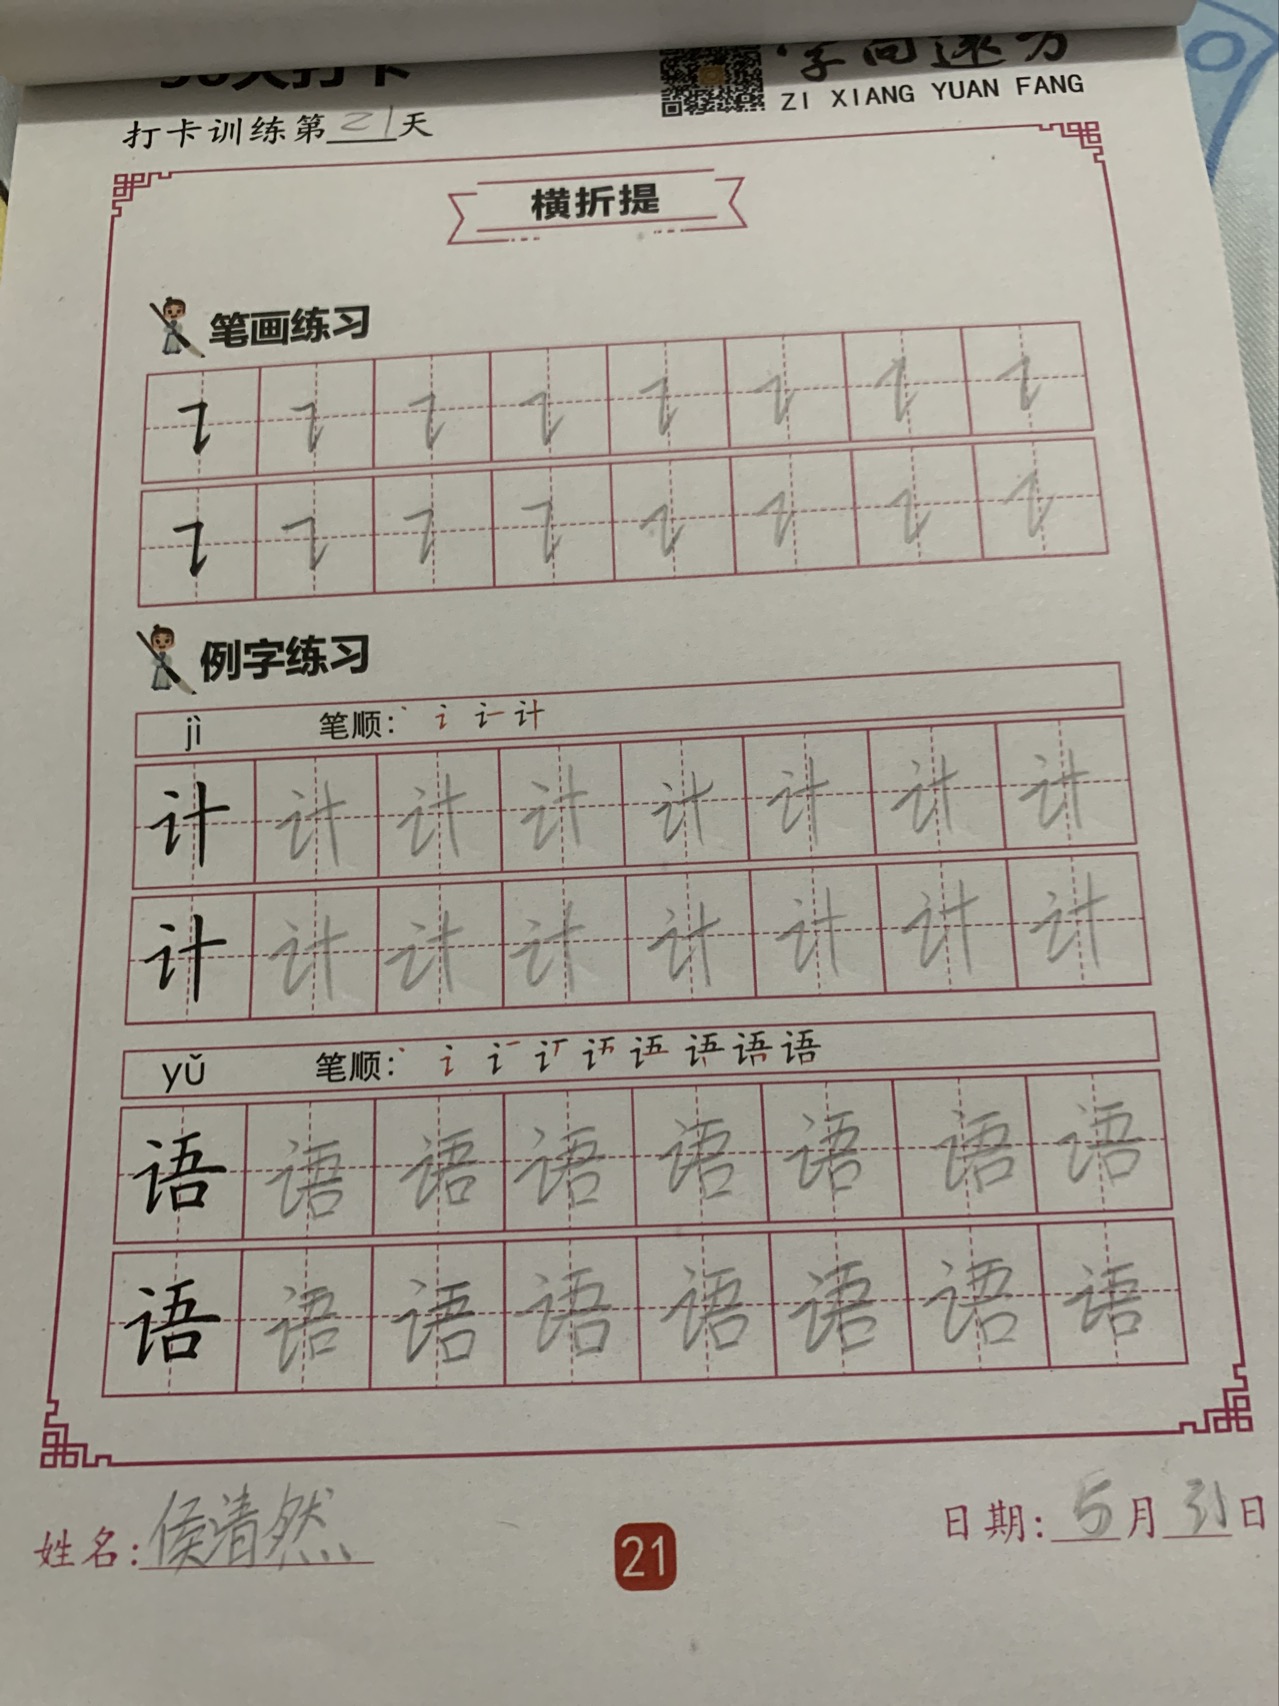 30天打卡
字向远方
ZI XIANG YUAN FANG
打卡训练第21天
横折提
笔画练习
例字练习
jì 笔顺：
计 计 计 计 计 计 计 计
计 计 计 计 计 计 计 计
yǔ 笔顺：
语 语 语 语 语 语 语 语
语 语 语 语 语 语 语 语
姓名：侯清然
21
日期：5月31日